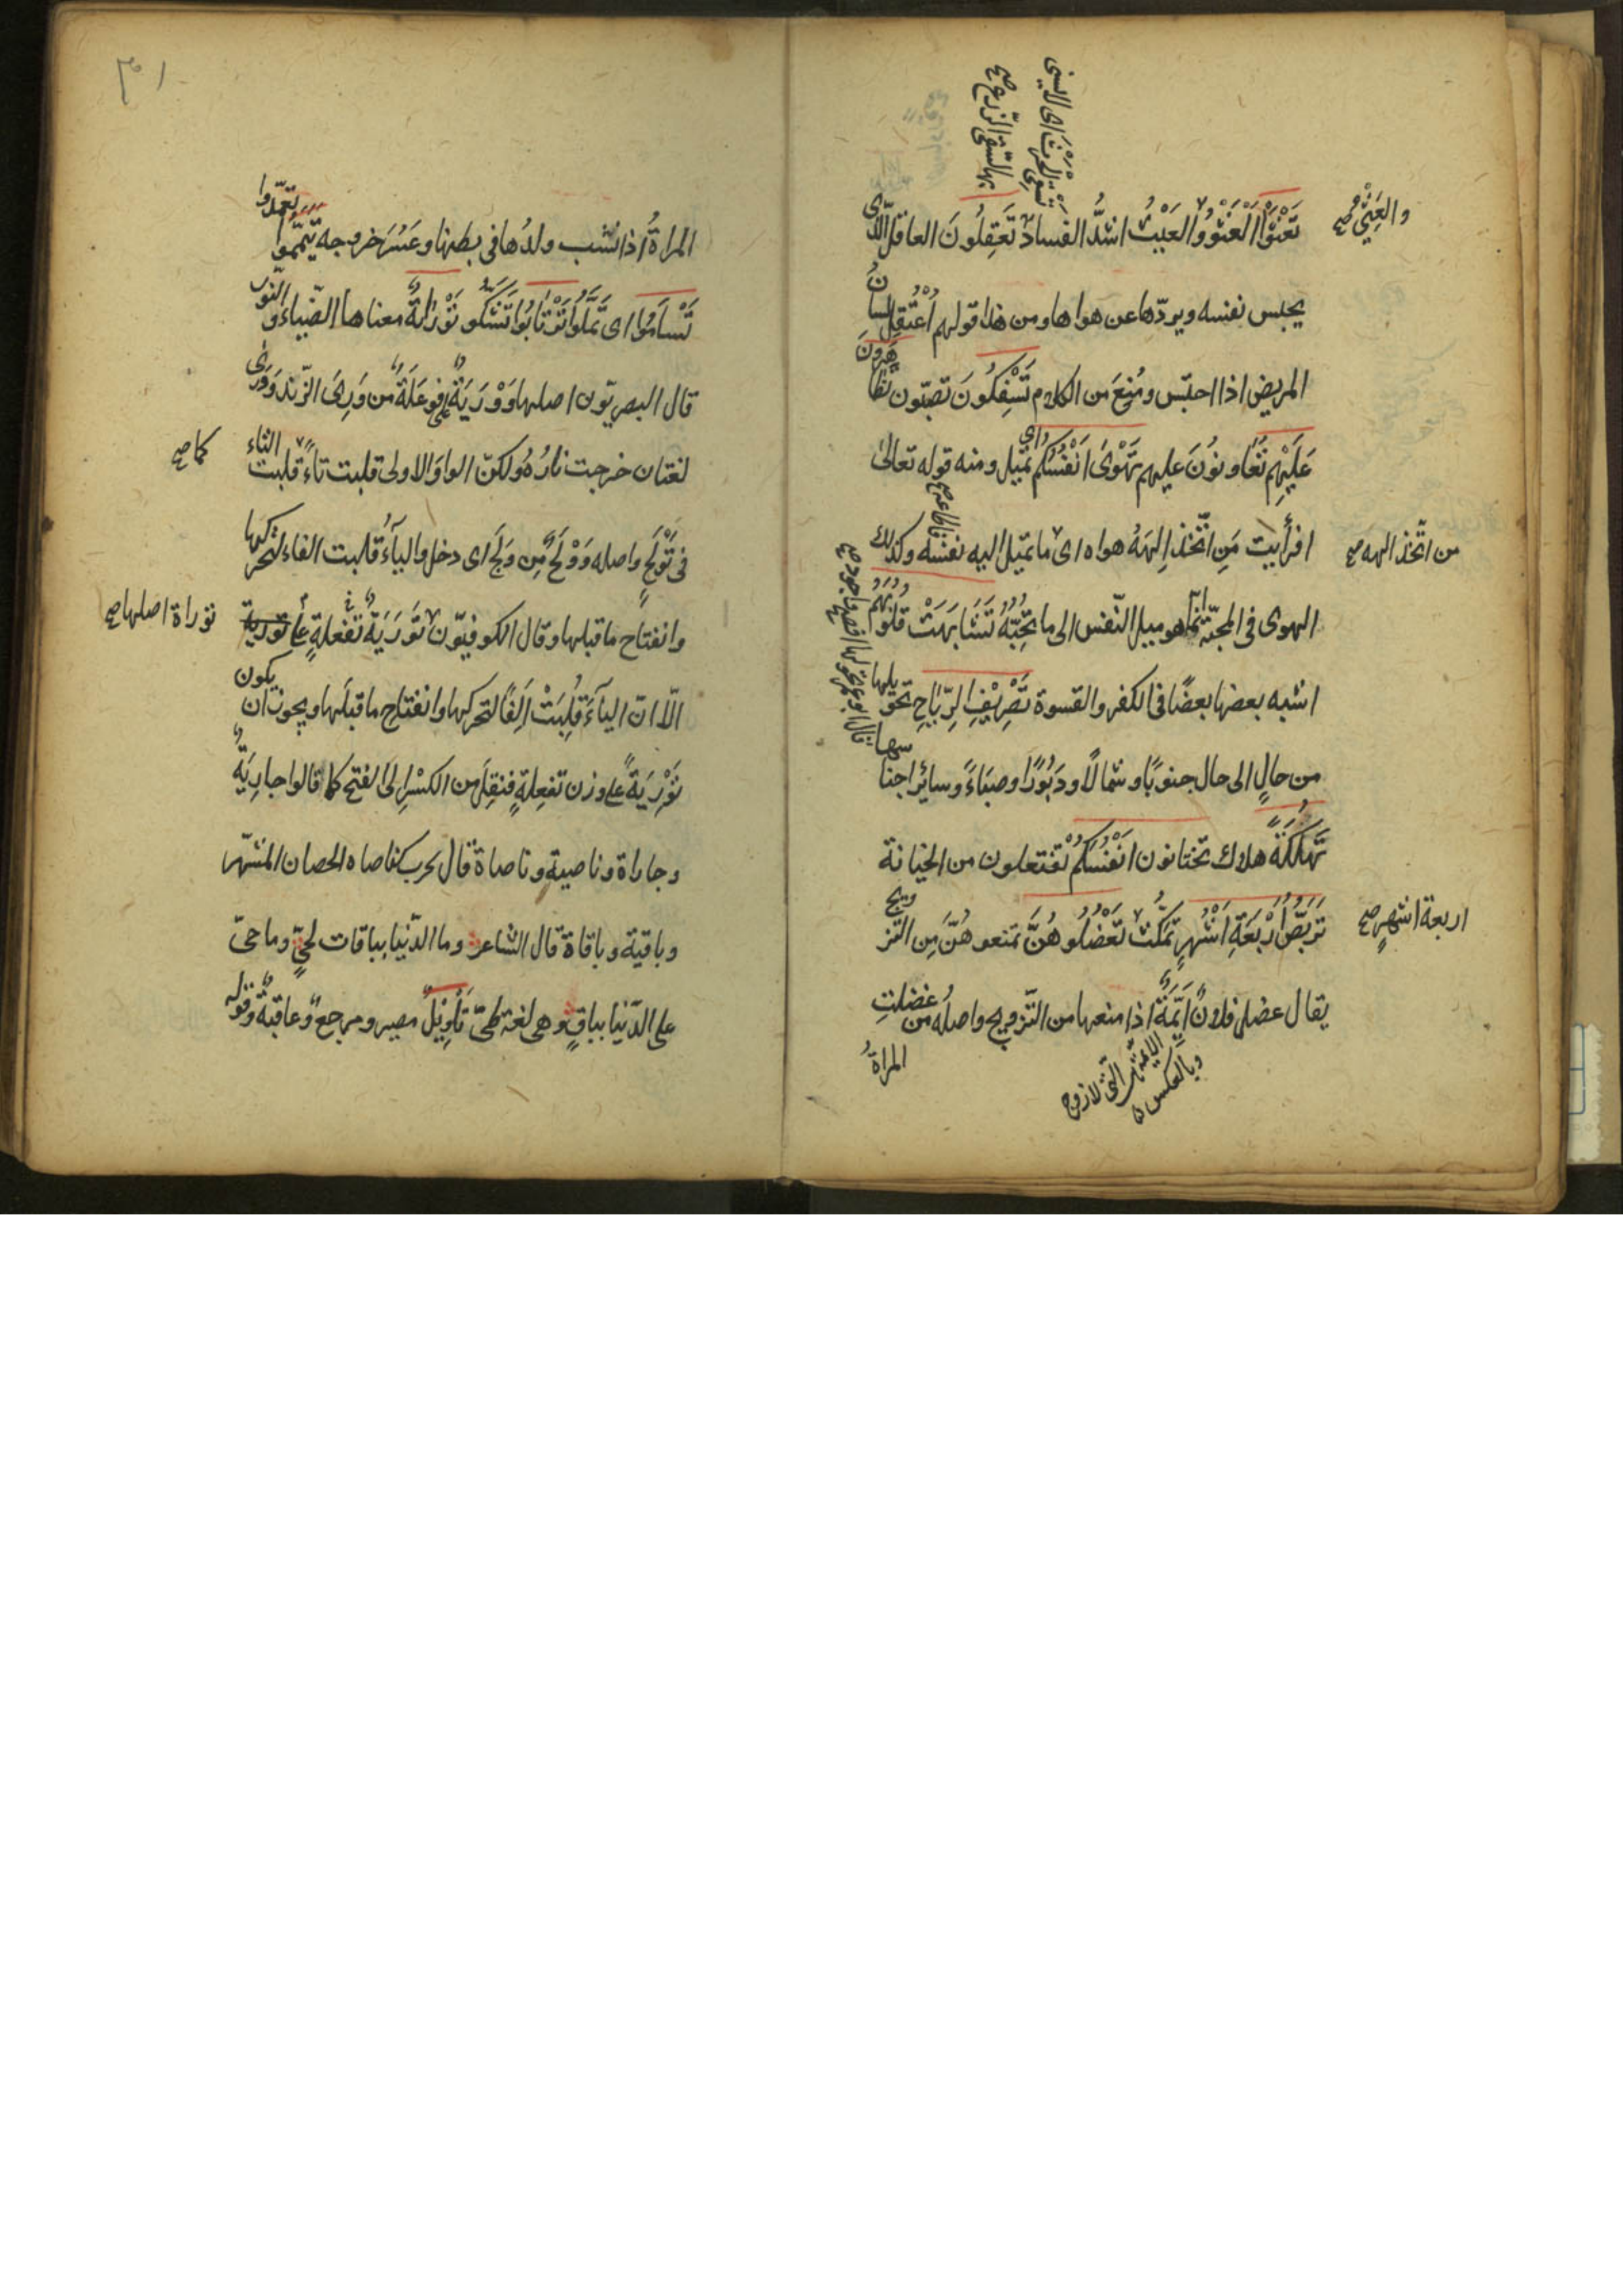 تسقى الحرث اى لا يسنى
بها لتسقى الزرع صح
تَعْثَوْا الْعَثْوُ والْعَيْثُ اشدُّ الفساد تَعْقِلُونَ العاقل الّذى
والعِثِىُّ صح
يحبس نفسه ويردّها عن هواها ومن هذا قولهم اُعْتُقِلَ لسانُ
المريض اذا احتبس ومُنِعَ من الكلام تَسْفِكُونَ تصبّون تَظَاهَرُونَ
عَلَيْهِمْ تَعَاونُونَ عليهم تَهْوَى اَنْفُسُكُم اى تميل ومنه قوله تعالىٰ
افرأيت مَنِ اتّخذ اِلهَهُ هواه اى ما تميل اليه نفسه وكذلك
من اتّخذ الهه صح
الهوى فى المحبّة انّما هو ميل النّفس الى ما تُحِبُّهُ تَشَابَهَتْ قُلُوبُهُمْ
اشبه بعضها بعضًا فى الكفر والقسوة تَصْرِيْفِ الرِّيَاحِ تحويلها
من حالٍ الى حال جنوبًا وشمالاً ودَبُورًا وصبَاءً وسائر اجناسها
تَهْلُكَةً هلاك تختانون اَنْفُسَكُمْ تفتعلون من الخيانة
تَرَبُّصُ اَرْبَعَةِ اَشْهُرٍ تمكُّث تَعْضُلُوهُنَّ تمنعوهُنَّ مِن التزويج
اربعة اشهرٍ صح
يقال عضل فلانٌ ايّمَهُ اذا منعها من التّزويج واصلُه من عضلتِ
المراةُ
وبالعكس
المراةُ اذا نشب ولدُها فى بطنها وعَسُرَ خروجه تَيَمَّمُوا تعمّدوا
تَسْاَمُوا اى تَمَلُّوا تَرْتَابُوا تَشُكّو تَوْرَاةٌ معناها الضّياءُ والنّور
قال البصريّون اصلها وَوْرَيَةٌ فوعَلَةٌ من وَرِىَ الزّند وَوَرَى
لغتان خرجت نارُهُ ولكنّ الواوَ الاولى قلبت تاءً قلبت التاء
كما صح
فى تَوْلَجٍ واصله وَوْلَجٌ مِن وَلَجَ اى دخل والياءُ قلبت الفاء لتحرّكها
وانفتاح ما قبلها وقال الكوفيّون تَوْرَيَةٌ تَفْعَلةٍ
توراة اصلها صح
الاّ انّ الياءَ قُلِبَتْ اَلِفًا لتحركها وانفتاح ما قبلَها ويجوز ان يكون
تَوْرِيَةً على وزن تفعِلةٍ فنقِلَ من الكسْرِ اِلَى الفتح كما قالوا جارِيَةٌ
وجاراة وناصية وناصاة قال بحرب كناصاه الحصان المشهّر
وباقية وباقاة قال الشاعر وما الدّنيا بباقات لحىٍّ وما حىّ
على الدّنيا بباقٍ وهى لغة طىّ تَاْوِيْلٌ مصير ومرجعٌ وعاقبةٌ وقوله